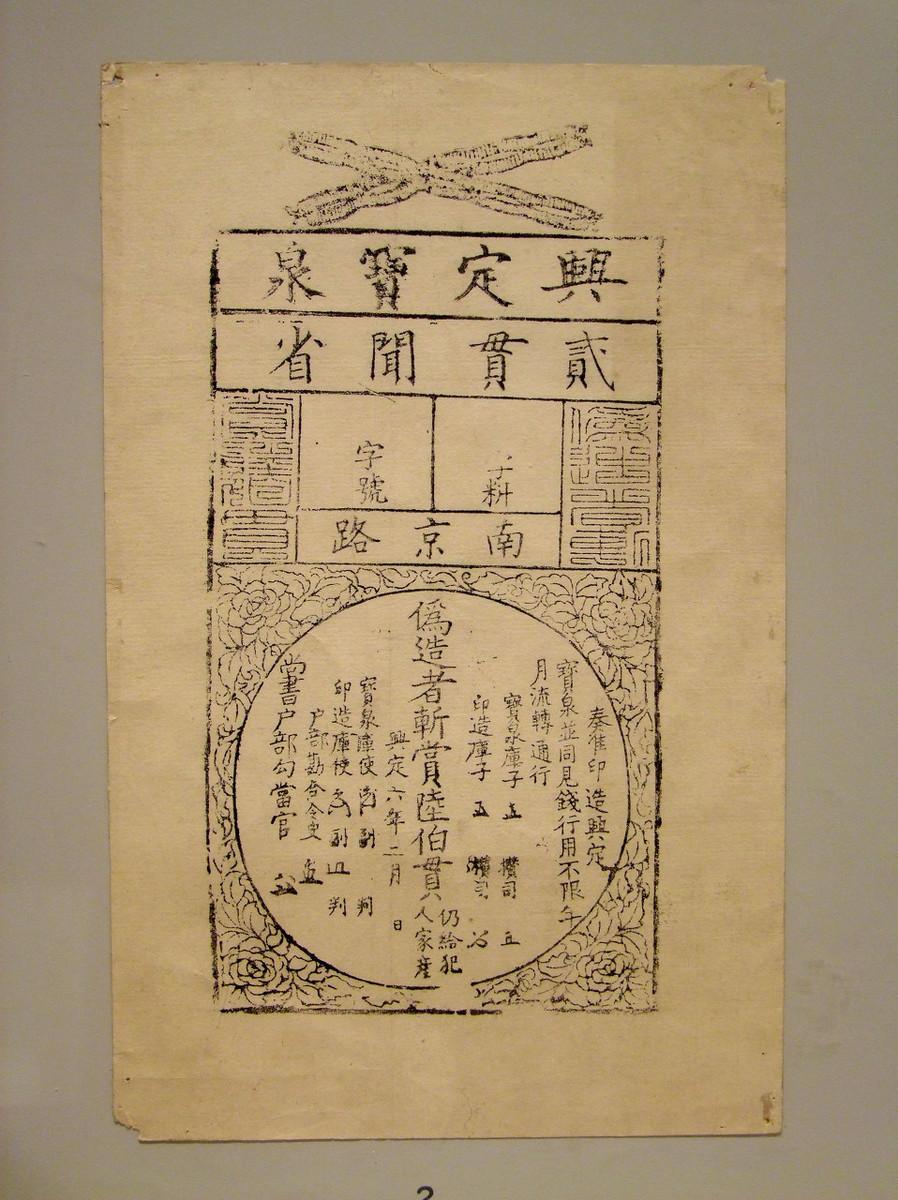 興定寶泉
貳貫聞省
字料
字號
南京路
奏准印造興定
寶泉並同見錢行用不限年
月流轉通行
寶泉庫子 攢司
印造庫子 攢司
偽造者斬賞陸伯貫
仍給犯
人家產
興定六年二月 日
寶泉庫使 副 判
印造庫使 副 判
戶部勘合令史
尚書户部勾當官
2